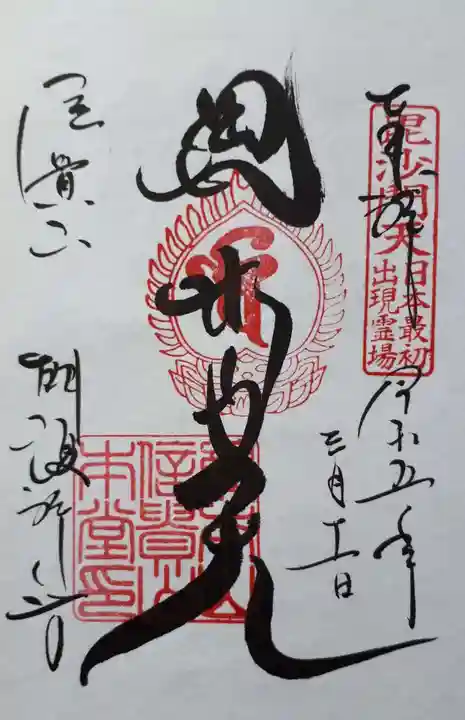 奉拝
毘沙門天
日本最初
出現霊場
令和五年
三月十一日
毘沙門天
總本山
信貴山
本堂印
信貴山
朝護孫子寺